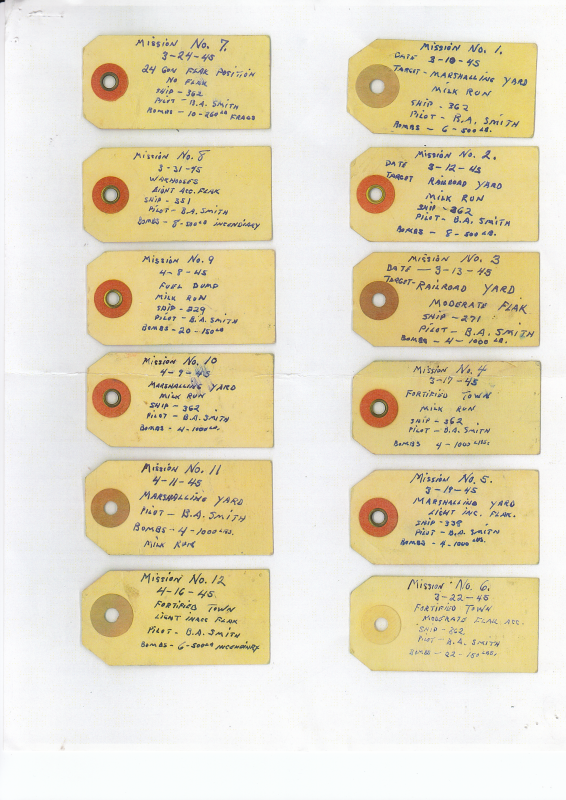 Mission No. 7.
3-24-45
24 Gun Flak Position
No Flak
Ship - 362
Pilot - B.A. Smith
Bombs - 10-260 LB Frags
Mission No. 8
3-31-45
Light Acc. Flak
Ship - 351
Pilot - B.A. Smith
Bombs - 8-500LB Incendiary
Mission No. 9
4-8-45
Fuel Dump
Milk Run
Ship - 329
Pilot - B.A. Smith
Bombs - 20-150LB
Mission No. 10
4-9-45
Marshalling Yard
Milk Run
Ship - 362
Pilot - B.A. Smith
Bombs - 4-1000LB.
Mission No. 11
4-11-45
Marshalling Yard
Pilot - B.A. Smith
Bombs - 4-1000 LBS.
Milk Run
Mission No. 12
4-16-45
Fortified Town
Light Inacc Flak
Pilot - B.A. Smith
Bombs - 6-500LB Incendiary
Mission No. 1.
Date 3-10-45
Target - Marshalling Yard
Milk Run
Ship - 362
Pilot - B.A. Smith
Bombs - 6-500 LB.
Mission No. 2.
Date 3-12-45
Target Railroad Yard
Milk Run
Ship - 362
Pilot - B.A. Smith
Bombs - 8-500 LB.
Mission No. 3
Date - 3-13-45
Target - Railroad Yard
Moderate Flak
Ship - 271
Pilot - B.A. Smith
Bombs - 4-1000 LB.
Mission No. 4
3-17-45
Fortified Town
Milk Run
Ship - 362
Pilot - B.A. Smith
Bombs 4-1000 LBS.
Mission No. 5.
3-19-45
Marshalling Yard
Light Inc. Flak.
Ship - 338
Pilot - B.A. Smith
Bombs - 4-1000 LBS.
Mission No. 6.
3-22-45
Fortified Town
Moderate Flak Acc.
Ship - 362
Pilot - B.A. Smith
Bombs - 22-150 LBS.